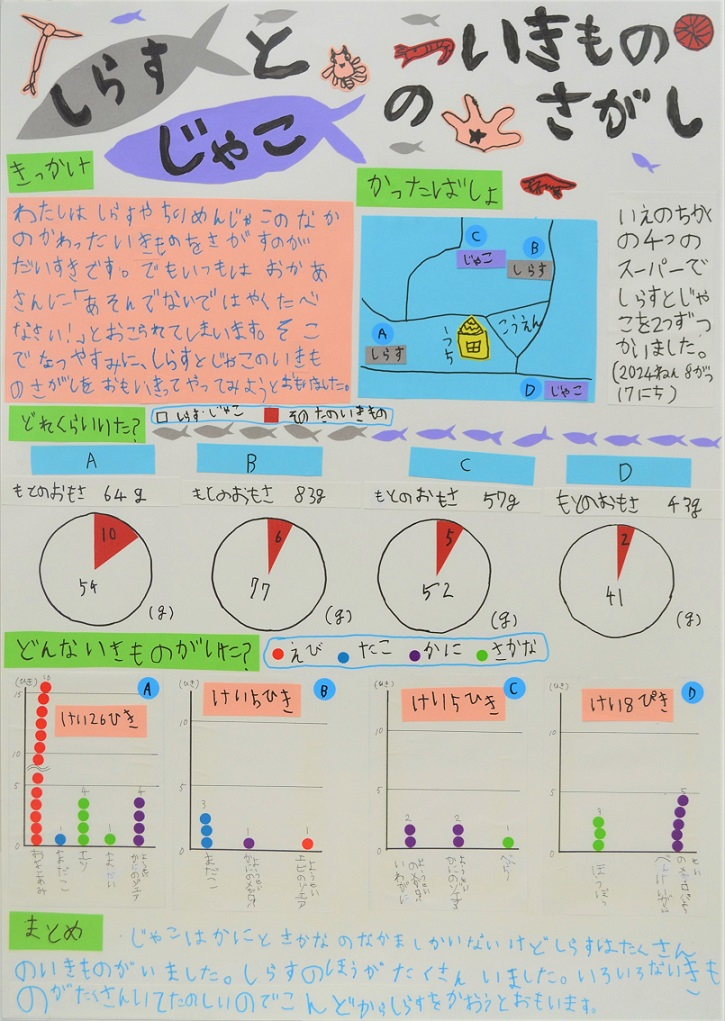 しらすと
じゃこ
のいきもの
さがし
きっかけ
わたしは しらすや ちりめんじゃこの なか
の かわった いきものを さがすのが
だいすきです。でもいつもは おかあ
さんに「あそんでないで はやくたべ
なさい!」とおこられてしまいます。そこ
で なつやすみに、しらすとじゃこのいきも
のさがしを おもいきってやってみようとおもいました。
かったばしょ
C
じゃこ
B
しらす
A
しらす
こうえん
D
じゃこ
いえのちかく
の4つの
スーパーで
しらすとじゃ
こを2つずつ
かいました。
(2024ねん8がつ
17にち)
どれくらいいた?
しらす・じゃこ
そのたのいきもの
A
もとのおもさ 64g
10
54
(g)
B
もとのおもさ 83g
6
77
(g)
C
もとのおもさ 57g
5
52
(g)
D
もとのおもさ 43g
2
41
(g)
どんないきものがいた?
えび
たこ
かに
さかな
(ひき)
A
けい26ひき
15
10
5
0
1
4
1
4
(ひき)
B
けい5ひき
10
5
0
3
1
1
(ひき)
C
けい5ひき
10
5
0
2
2
1
(ひき)
D
けい8ぴき
10
5
0
3
5
まとめ
じゃこはかにと さかな のなかましかいないけど しらすはたくさん
のいきものがいました。しらすのほうが たくさん いました。いろいろないきも
のがたくさんいてたのしいのでこんどからしらすをかおうとおもいます。